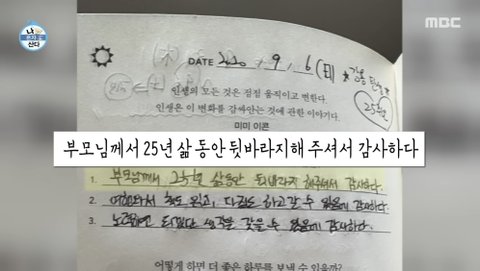 나 혼자 산다
MBC
(木) DATE 2020. 9. 6 (日)
25년
인생의 모든 것은 점점 움직이고 변한다.
인생은 이 변화를 감싸안는 것에 관한 이야기다.
미미 이콘
부모님께서 25년 삶 동안 뒷바라지해 주셔서 감사하다
1. 부모님께서 25년 삶동안 뒷바라지 해주셔서 감사하다.
2. 여행와서 힐도 하고 갈 수 있음에 감사하다.
3. 노력하면 된다는 생각을 갖을 수 있음에 감사하다.
어떻게 하면 더 좋은 하루를 보낼 수 있을까?